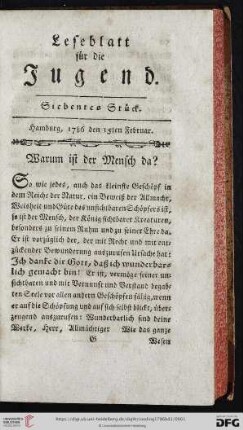 Leseblatt
für die
Jugend.
Siebentes Stück.
Hamburg, 1786 den 15ten Februar.
Warum ist der Mensch da?
So wie jedes, auch das kleinste Geschöpf in
dem Reiche der Natur, ein Beweiß der Allmacht,
Weisheit und Güte des unsichtbaren Schöpfers ist,
so ist der Mensch, der König sichtbarer Kreaturen,
besonders zu seinem Ruhm und zu seiner Ehre da.
Er ist vorzüglich der, der mit Recht und mit ent-
zückender Bewunderung auszurufen Ursach hat:
Ich danke dir Gott, daß ich wunderbar-
lich gemacht bin! Er ist, vermöge seiner un-
sichtbaren und mit Vernunft und Verstand begab-
ten Seele vor allen andern Geschöpfen fähig, wenn
er auf die Schöpfung und auf sich selbst blickt, über-
zeugend auszurufen: Wunderbarlich sind deine
Werke, Herr, Allmächtiger Wie das ganze
G Wesen